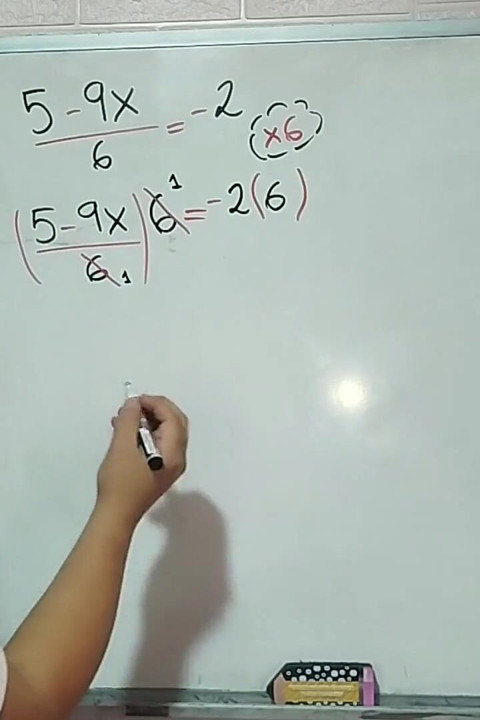 5-9x/6 = -2 ×6
(5-9x/6 1) 6 1 = -2(6)